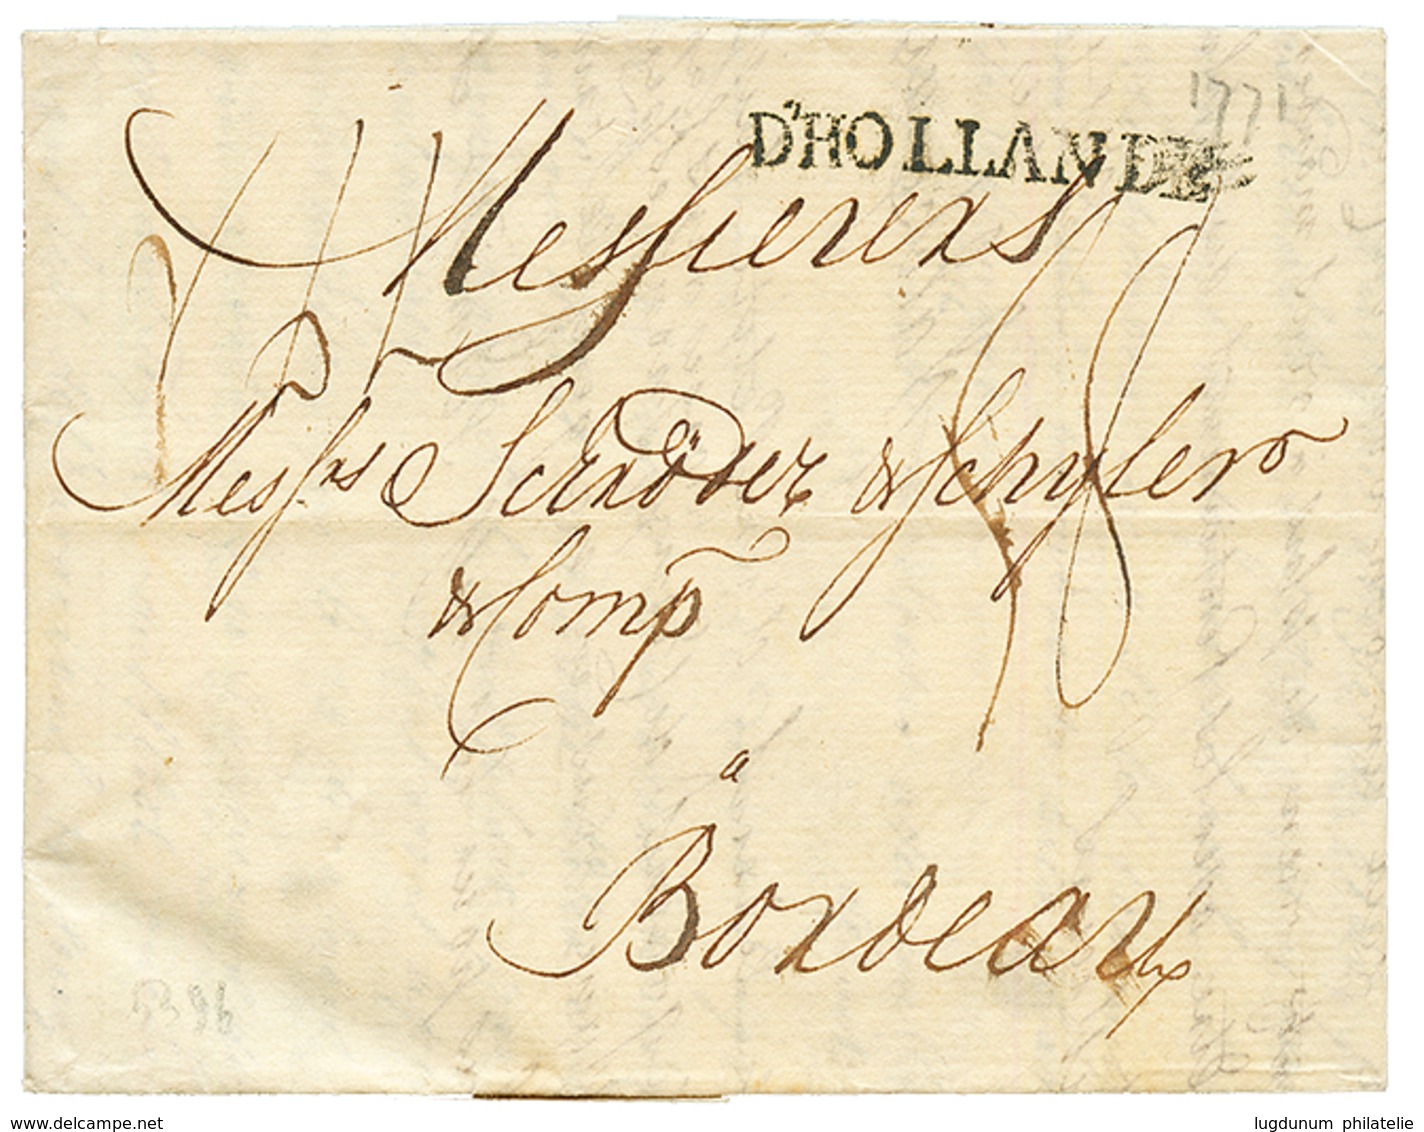 1771
D'HOLLANDE
Messieurs
Mess.rs Schröder & Schyler
& Comp
a
Bordeaux
5396
www.delcampe.net
lugdunum philatelie